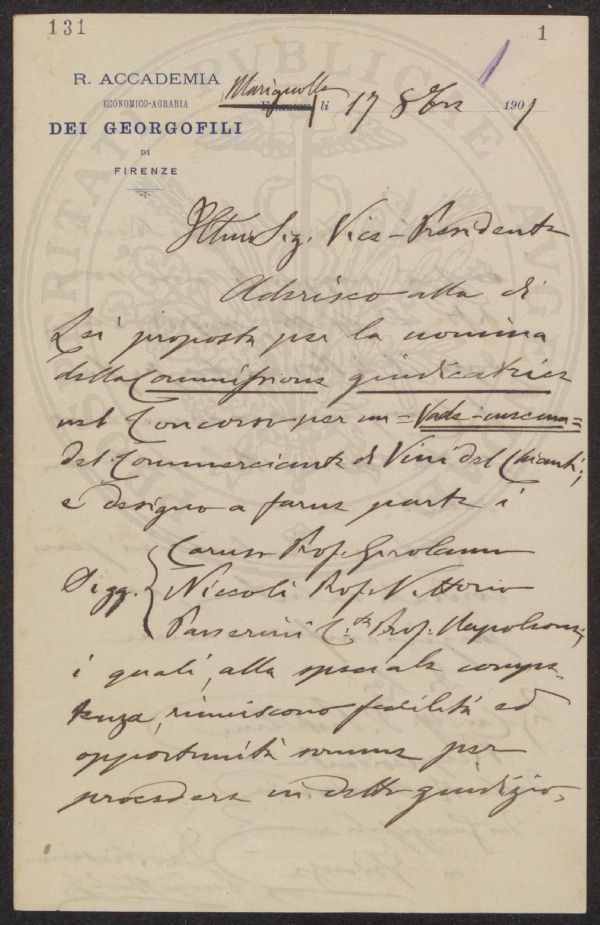 131
1
R. ACCADEMIA
ECONOMICO-AGRARIA
DEI GEORGOFILI
DI
FIRENZE
Marignolle
Firenze, li 17 8bre 1901
Illmo Sig. Vice-Presidente
Aderisco alla di
Lei proposta per la nomina
della Commissione giudicatrice
nel Concorso per un =Vade-mecum=
del Commerciante di Vini del Chianti;
e designo a farne parte i
Caruso Prof. Girolamo
Sigg. Niccoli Prof. Vittorio
Passerini C.te Prof. Napoleone;
i quali, alla speciale compe-
tenza, riuniscono facilità ed
opportunità somma per
procedere in detto giudizio.